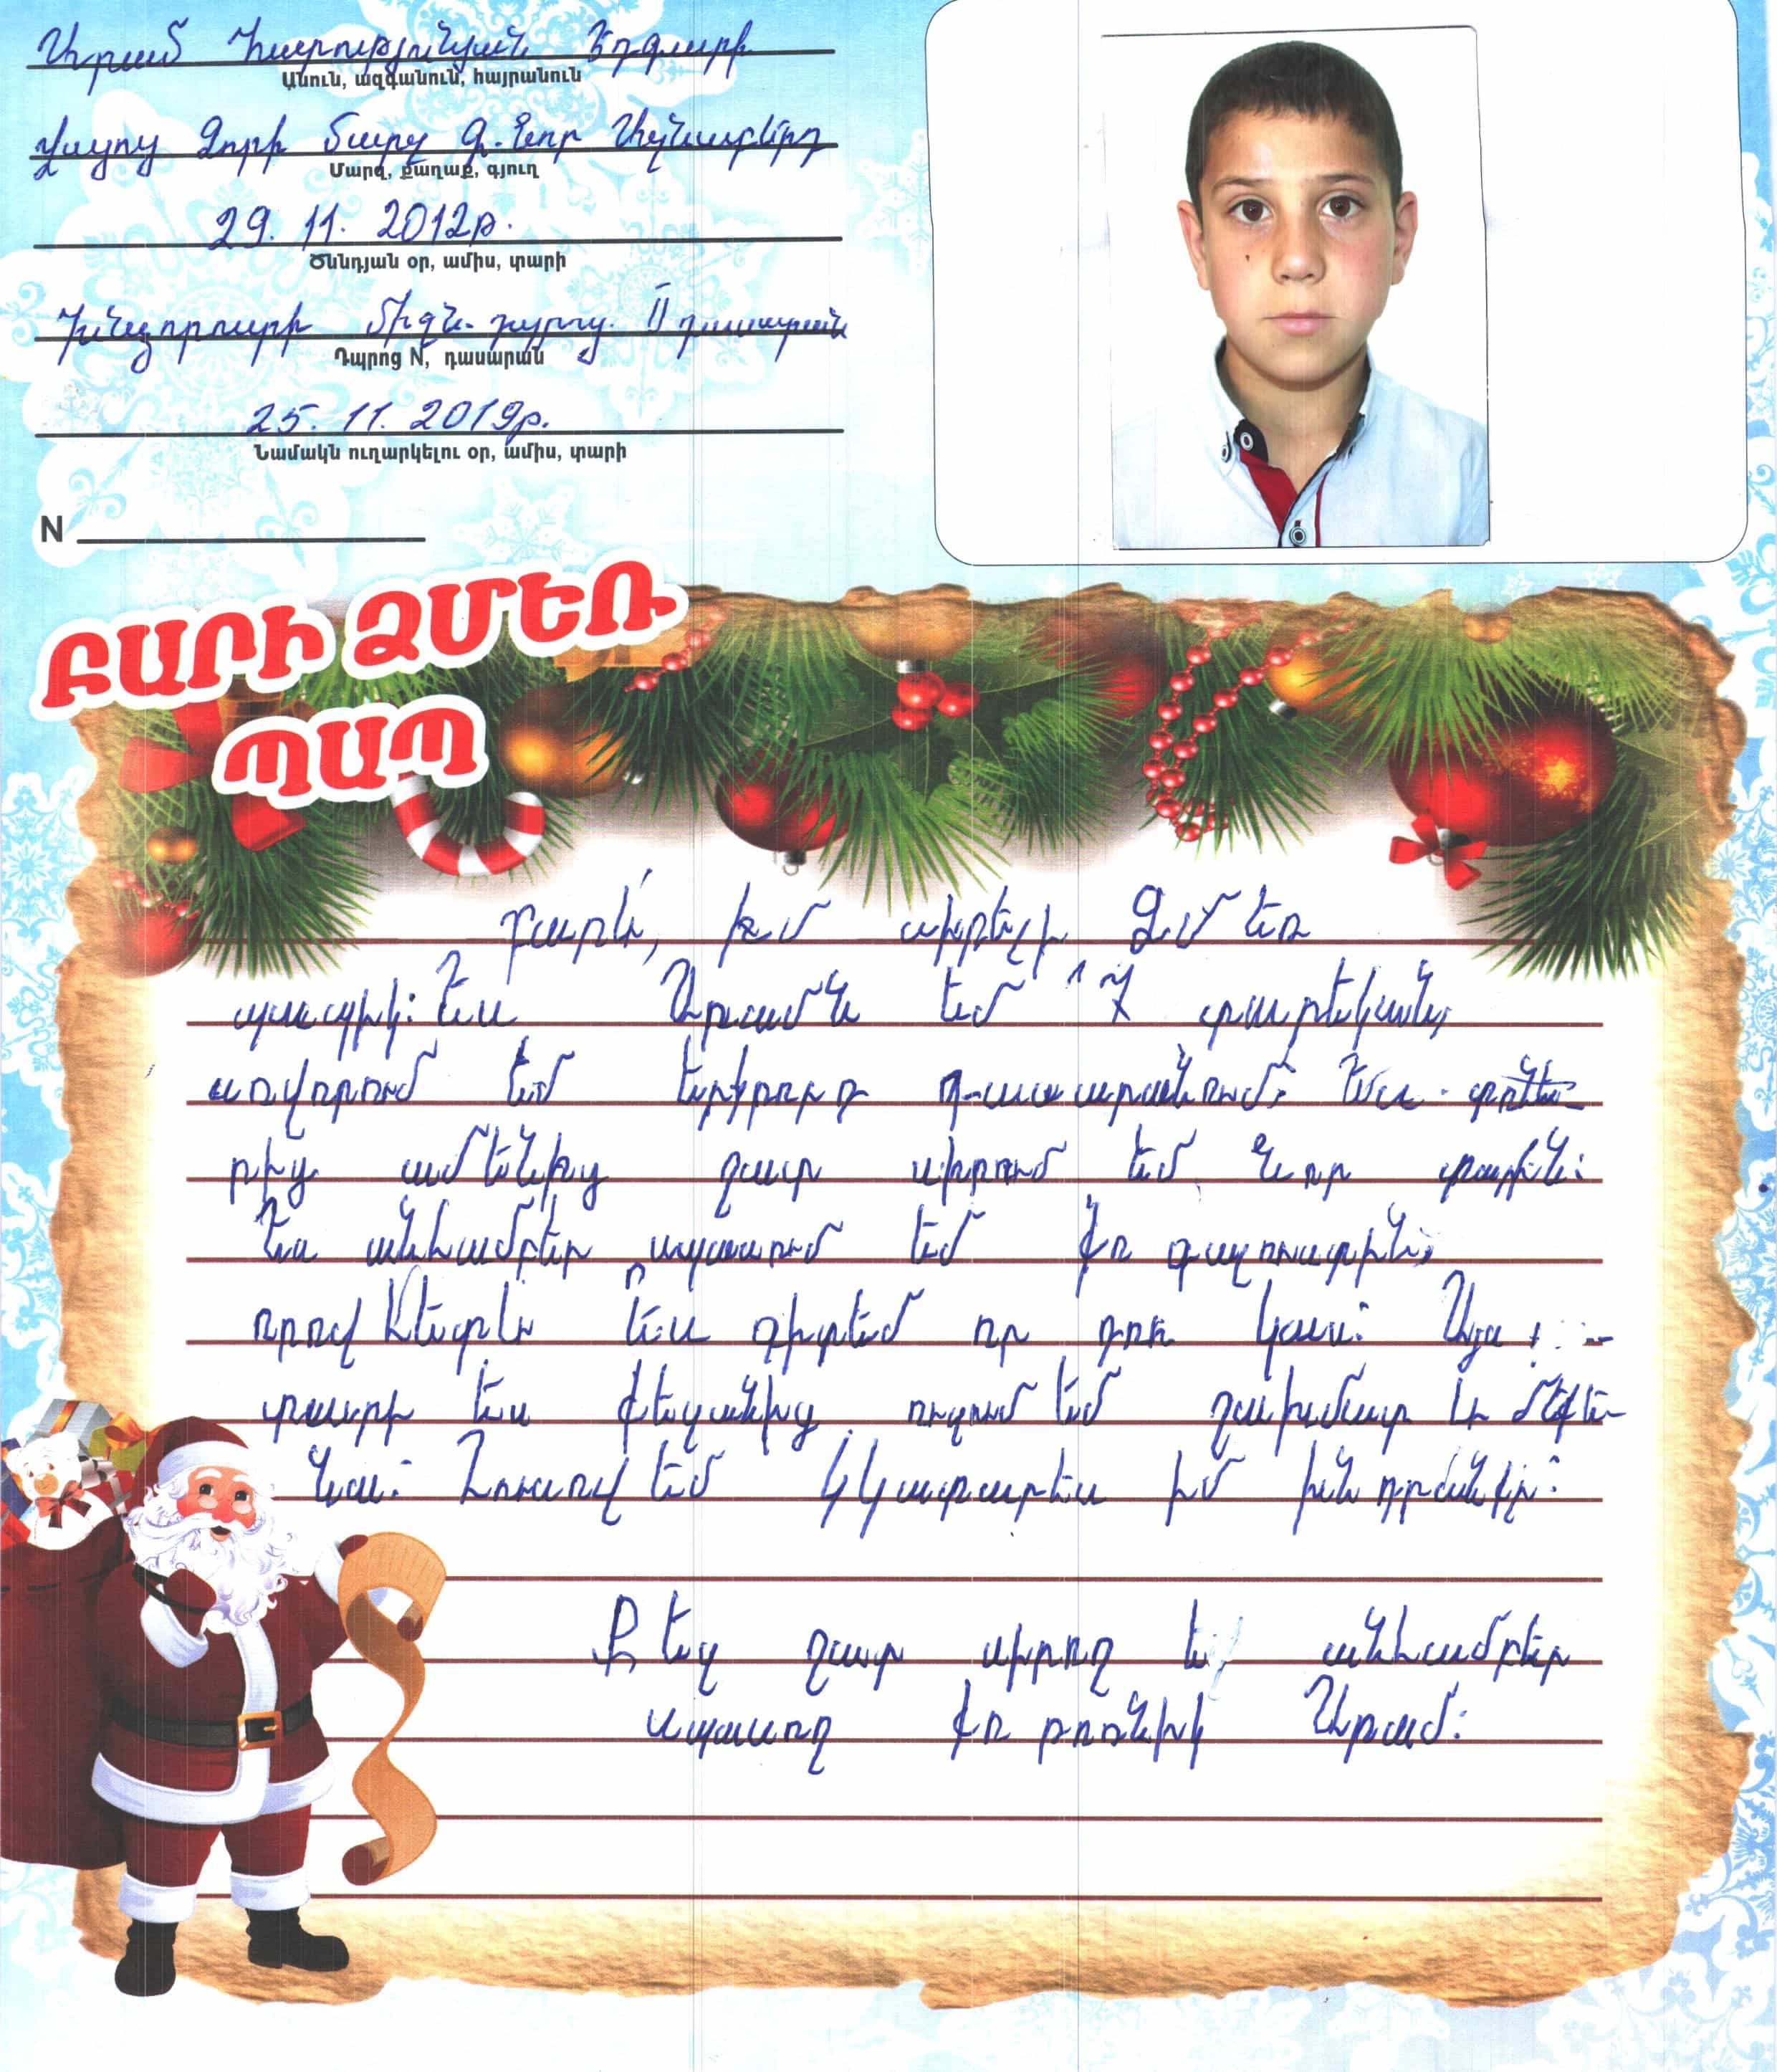 Արամ Հարությունյան Էդգարի
Անուն, ազգանուն, հայրանուն
Վայոց Ձորի մարզ գ. Նոր Ազնաբերդ
Մարզ, քաղաք, գյուղ
29. 11. 2012թ.
Ծննդյան օր, ամիս, տարի
Խնձորուտի միջն. դպրոց. II դասարան
Դպրոց N, դասարան
25. 11. 2019թ.
Նամակն ուղարկելու օր, ամիս, տարի
N
ԲԱՐԻ ՁՄԵՌ
ՊԱՊ
Բարև՛, իմ սիրելի Ձմեռ
պապիկ: Ես Արամն եմ 7 տարեկան,
սովորում եմ երկրորդ դասարանում: Ես տոնե-
րից ամենից շատ սիրում եմ Նոր տարին:
Ես անհամբեր սպասում եմ քո գալուստին,
որովհետև ես գիտեմ որ դու կաս: Այս
տարի ես քեզանից ուզում եմ շախմատ և մեքե-
նա: Հուսով եմ կկատարես իմ խնդրանքը:
Քեզ շատ սիրող և անհամբեր
սպասող քո թոռնիկ Արամ: